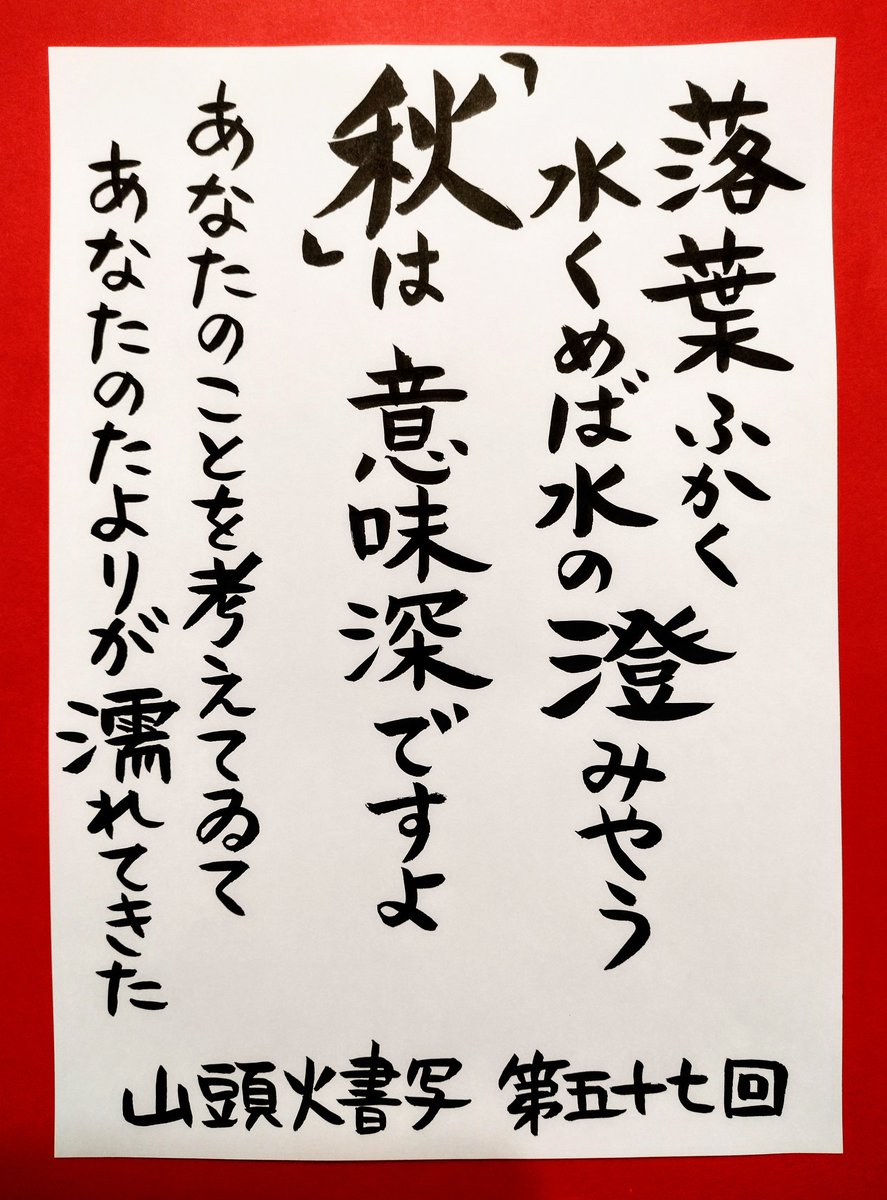 落葉ふかく
水くめば水の澄みやう
「秋」は 意味深ですよ
あなたのことを考えてゐて
あなたのたよりが濡れてきた
山頭火書写 第五十七回